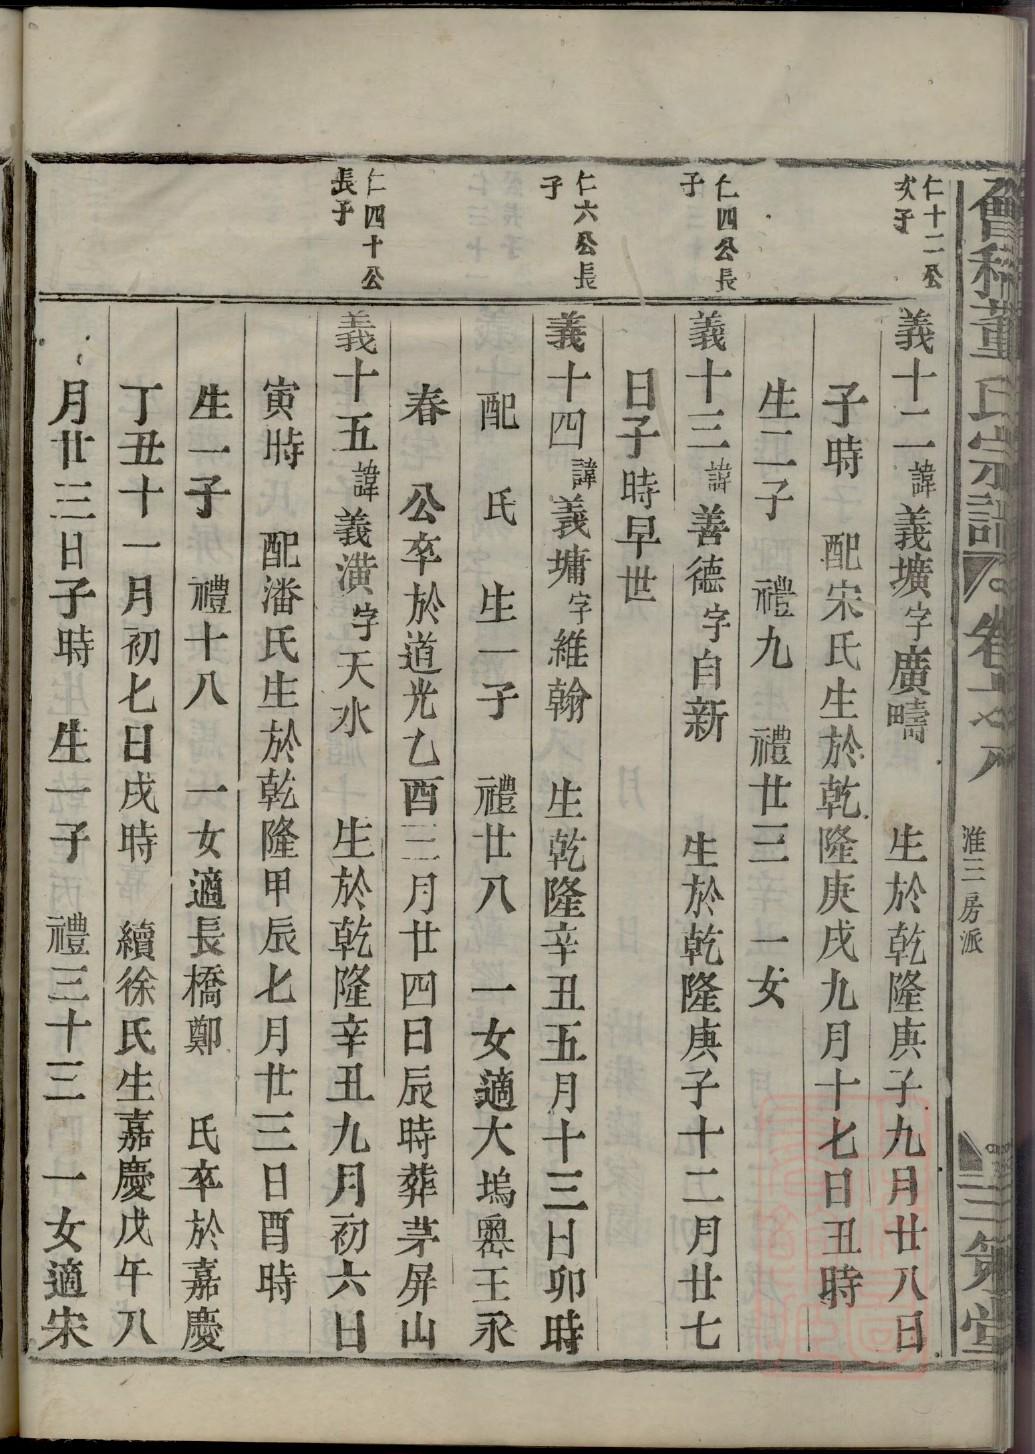 會稽董氏宗譜 卷十
淮三房派
三策堂
仁十二公
次子
義十二諱義壙字廣疇 生於乾隆庚子九月廿八日
子時 配宋氏生於乾隆庚戌九月十七日丑時
生二子 禮九 禮廿三 一女
仁四公長
子
義十三諱善德字自新 生於乾隆庚子十二月廿七
日子時早世
仁六公長
子
義十四諱義墉字維翰 生乾隆辛丑五月十三日卯時
配 氏 生一子 禮廿八 一女適大塢嶴王永
春 公卒於道光乙酉三月廿四日辰時葬茅屏山
仁四十公
長子
義十五諱義潢字天水 生於乾隆辛丑九月初六日
寅時 配潘氏生於乾隆甲辰七月廿三日酉時
生一子 禮十八 一女適長橋鄭 氏卒於嘉慶
丁丑十一月初七日戌時 續徐氏生嘉慶戊午八
月廿三日子時 生一子 禮三十三 一女適宋